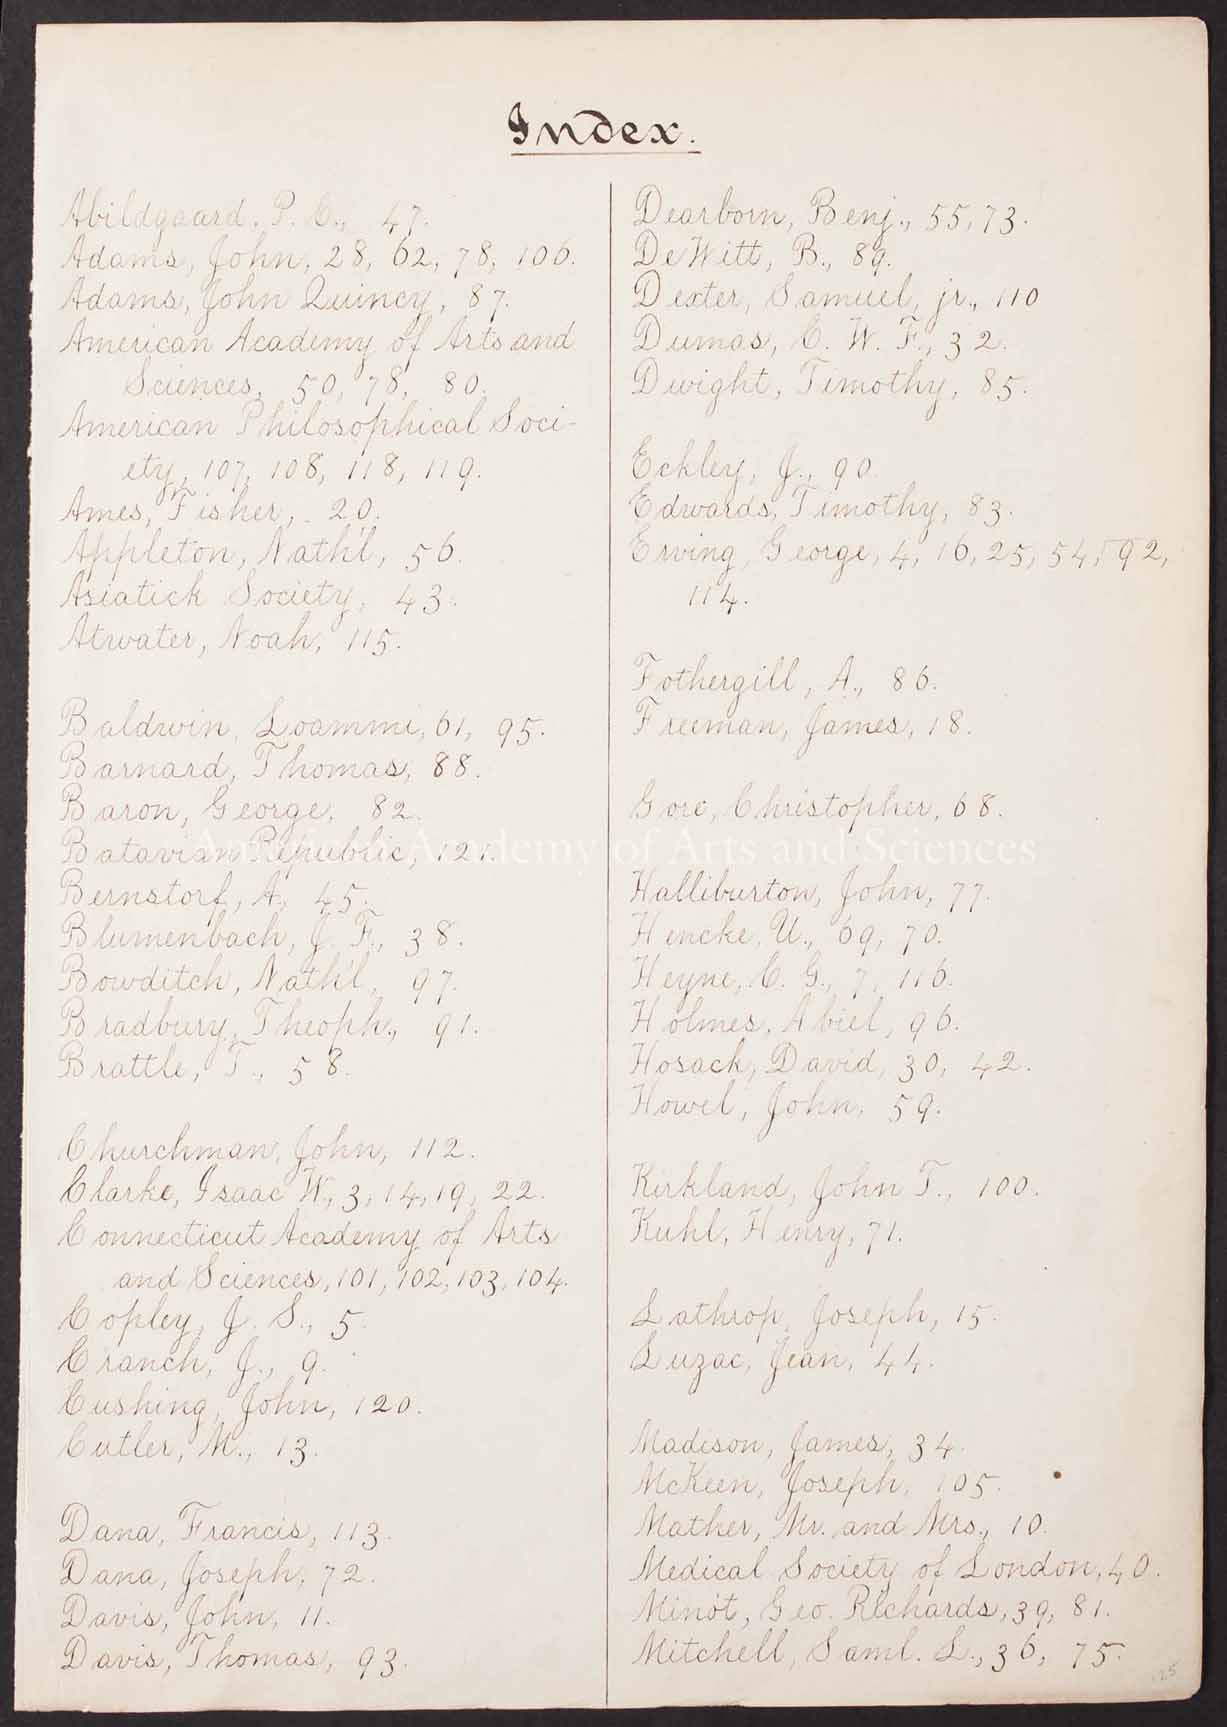 Index.
Abildgaard, P. C., 47.
Adams, John, 28, 62, 78, 106.
Adams, John Quincy, 87.
American Academy of Arts and
Sciences, 50, 78, 80.
American Philosophical Soci-
ety, 107, 108, 118, 119.
Ames, Fisher, 20.
Appleton, Nath'l, 56.
Asiatick Society, 43.
Atwater, Noah, 115.
Baldwin, Loammi, 61, 95.
Barnard, Thomas, 88.
Baron, George, 82.
Batavian Republic, 121.
Bernstorf, A., 45.
Blumenbach, J. F., 38.
Bowditch, Nath'l, 97.
Bradbury, Theoph., 91.
Brattle, T., 58.
Churchman, John, 112.
Clarke, Isaac W., 3, 14, 19, 22.
Connecticut Academy of Arts
and Sciences, 101, 102, 103, 104.
Copley, J. S., 5.
Cranch, J., 9.
Cushing, John, 120.
Cutler, M., 13.
Dana, Francis, 113.
Dana, Joseph, 72.
Davis, John, 11.
Davis, Thomas, 93.
Dearborn, Benj., 55, 73.
DeWitt, B., 89.
Dexter, Samuel, jr., 110
Dumas, C. W. F., 32.
Dwight, Timothy, 85.
Eckley, J., 90.
Edwards, Timothy, 83.
Erving, George, 4, 16, 25, 54, 92,
114.
Fothergill, A., 86.
Freeman, James, 18.
Gore, Christopher, 68.
Halliburton, John, 77.
Hencke, U., 69, 70.
Heyne, C. G., 7, 116.
Holmes, Abiel, 96.
Hosack, David, 30, 42.
Howel, John, 59.
Kirkland, John T., 100.
Kuhl, Henry, 71.
Lathrop, Joseph, 15.
Luzac, Jean, 44.
Madison, James, 34.
McKeen, Joseph, 105.
Mather, Mr. and Mrs., 10.
Medical Society of London, 40.
Minot, Geo. Richards, 39, 81.
Mitchell, Saml. L., 36, 75.
125
American Academy of Arts and Sciences